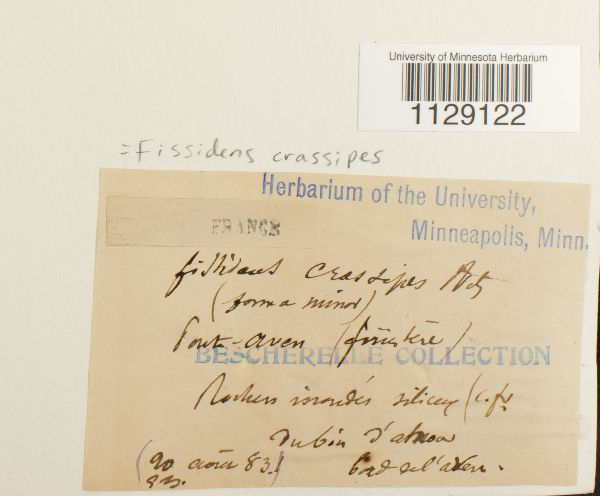 University of Minnesota Herbarium
1129122
=Fissidens crassipes
Herbarium of the University,
Minneapolis, Minn.
FRANCE
fissidens crassipes
(forma minor)
Pont-aven (finistère)
BESCHERELLE COLLECTION
Rochers inondés siliceux (c.fr
(20 août 83)